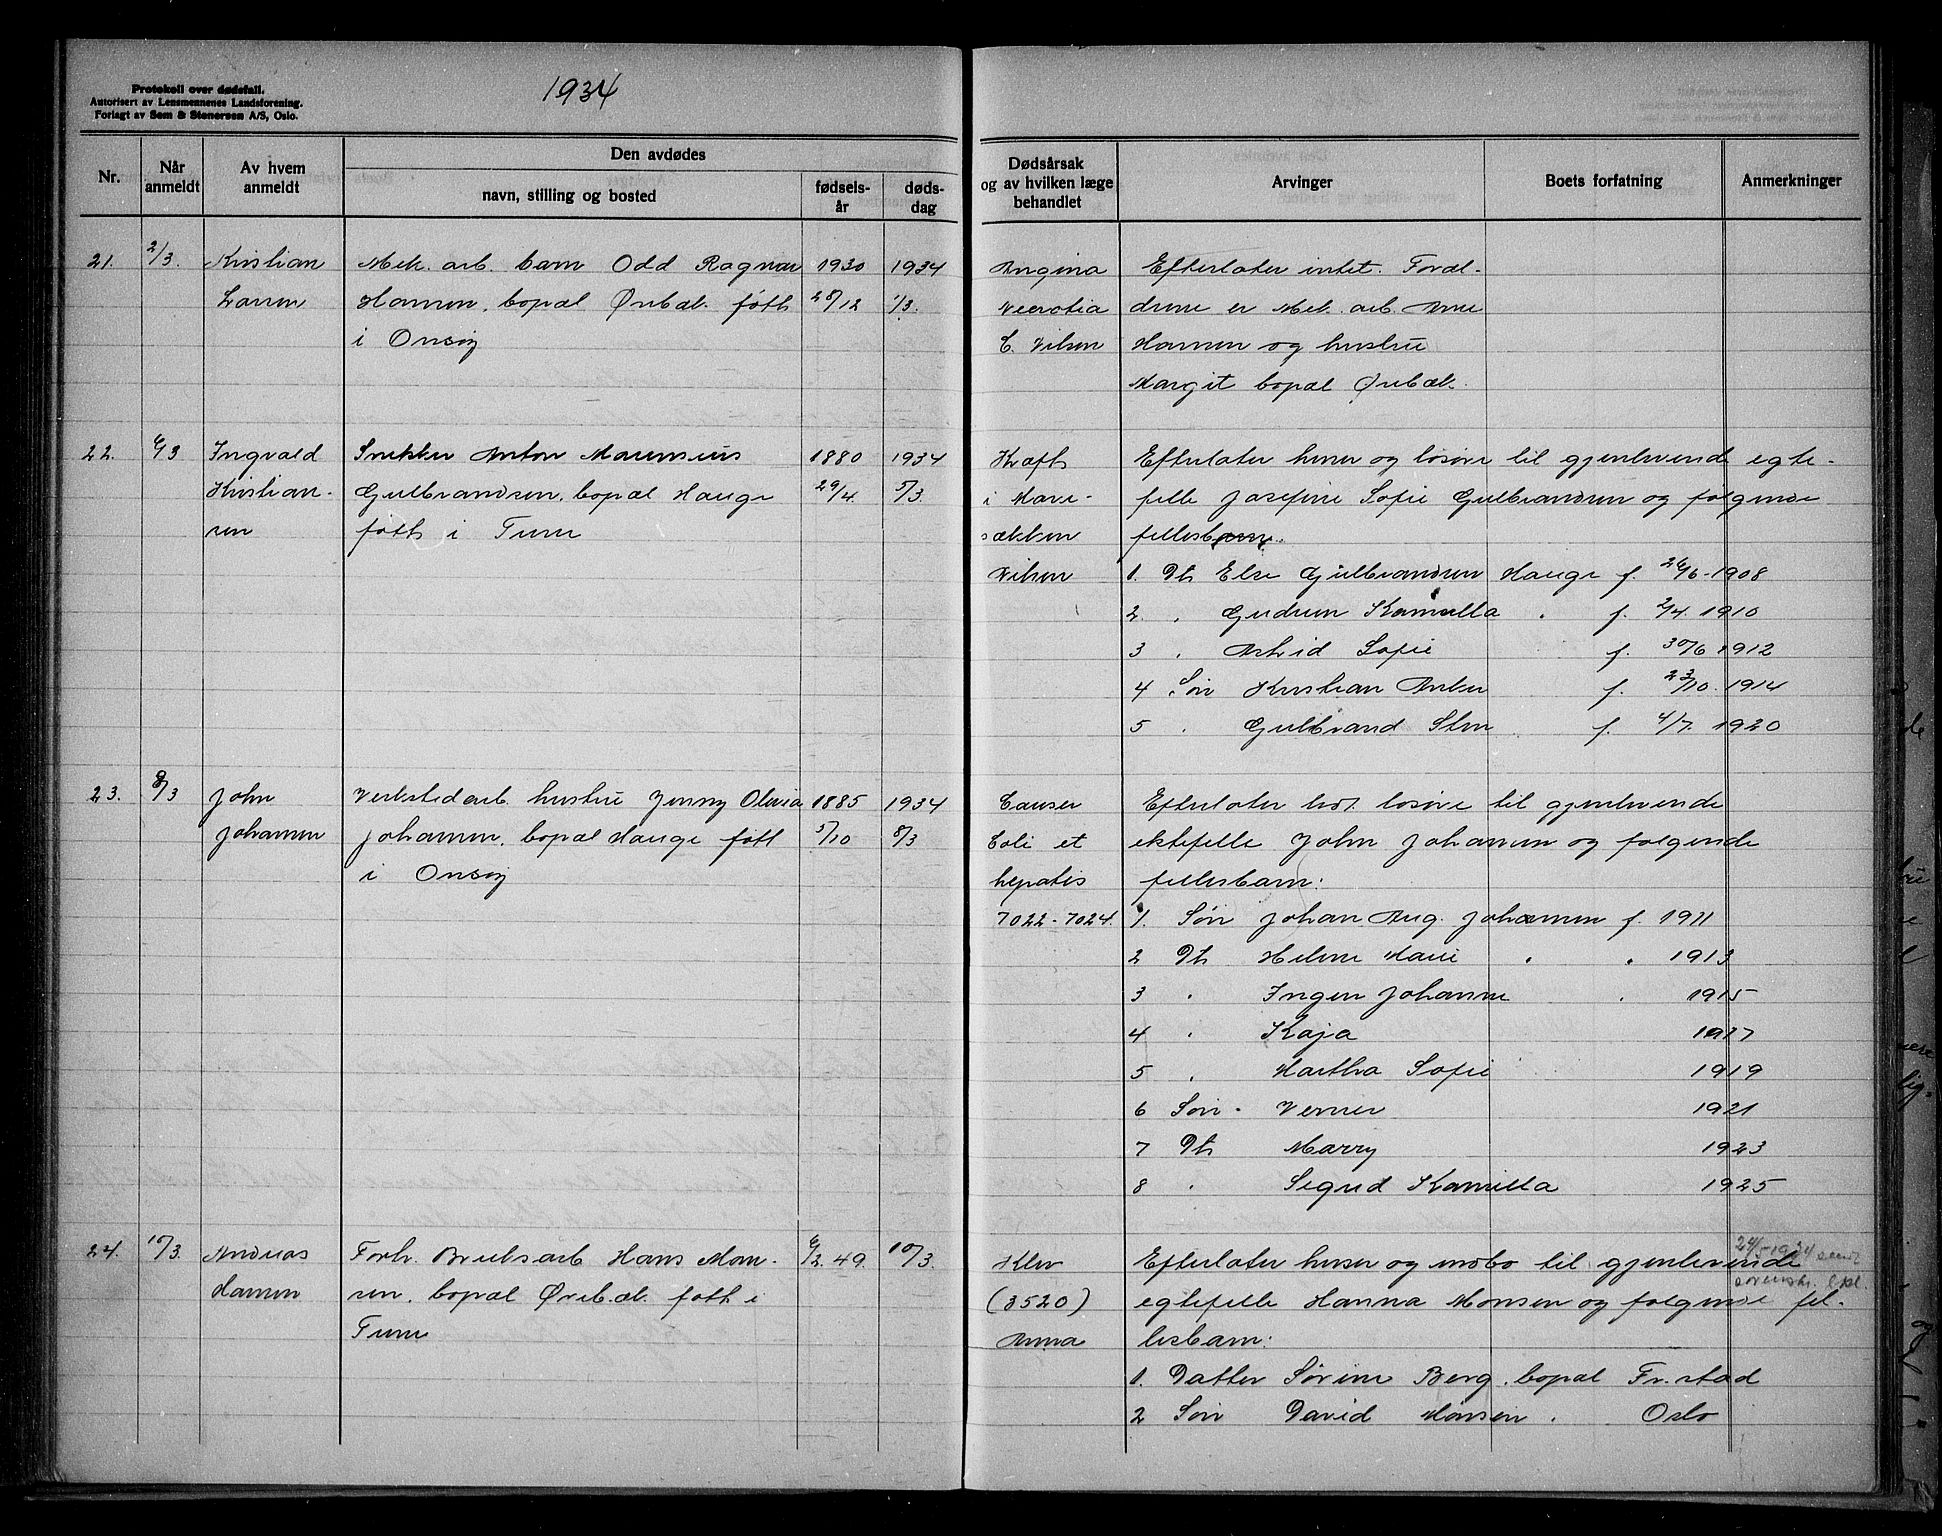 Protokoll over dødsfall.
Autorisert av Lensmennenes Landsforening.
Forlagt av Sem & Stenersen A/S, Oslo.
1934
Nr.
Når anmeldt
Av hvem anmeldt
Den avdødes
navn, stilling og bosted
fødsels-år
døds-dag
Dødsårsak og av hvilken læge behandlet
Arvinger
Boets forfatning
Anmerkninger
21. 2/3. Kristian Mek. arb. barn Odd Ragnar 1930 1934
Larsen Hansen, bopæl Ørebæk. født 28/12 1/3.
i Onsøy
Angina Efterlater intet. Foræl-
drene er Mek. arb. Arne
C. Nilsen Hansen og hustru
Margit bopæl Ørebæk.
22. 6/3 Ingvald Snekker Anton Marensius 1880 1934
Kristian- Gulbrandsen, bopæl Hauge 29/4 5/3.
sen født i Tune
Kræft Efterlater huser og løsøre til gjenlevende egte-
i Mave- felle Josefine Sofie Gulbrandsen og følgende
sækken fellesbarn.
Nilsen 1. Dt Else Gulbrandsen Hauge f. 26/6-1908
2. " Gudrun Kamilla " f. 2/4. 1910
3 " Astrid Sofie f. 30/6 1912
4 Søn Kristian Anker f. 23/10. 1914
5 " Gulbrand Sten f. 4/7. 1920
23. 8/3 John Verkstedarb. hustru Jenny Olivia 1885 1934
Johansen Johansen, bopæl Hauge født 5/10 8/3
i Onsøy
Cancer Efterlater lidt løsøre til gjenlevende
Coli et ektefelle John Johansen og følgende
hepatis fellesbarn:
7022-7024. 1. Søn Johan Aug. Johansen f. 1911
2 Dt Helene Marie " " 1913
3 " Inger Johanne " 1915
4 " Kaja 1917
5 " Martha Sofie 1919
6 Søn - Verner 1921
7 Dt Marry 1923
8 " Sigrid Kamilla 1925
24. 10/3. Andreas Forh. Bruksarb Hans Mon- 6/2. 49. 10/3.
Hansen sen, bopæl Ørebæk. født i
Tune
24/5 1934
Efterlater huser og innbo til gjenlevende
(3520) egtefelle Hanna Monsen og følgende fel-
Anna lesbarn:
1. Datter Sørine Berg, bopæl Fr.stad
2 Søn David Monsen " Oslo